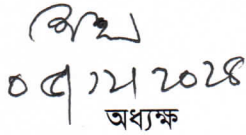 ০৫/১২/২০২৪
অধ্যক্ষ